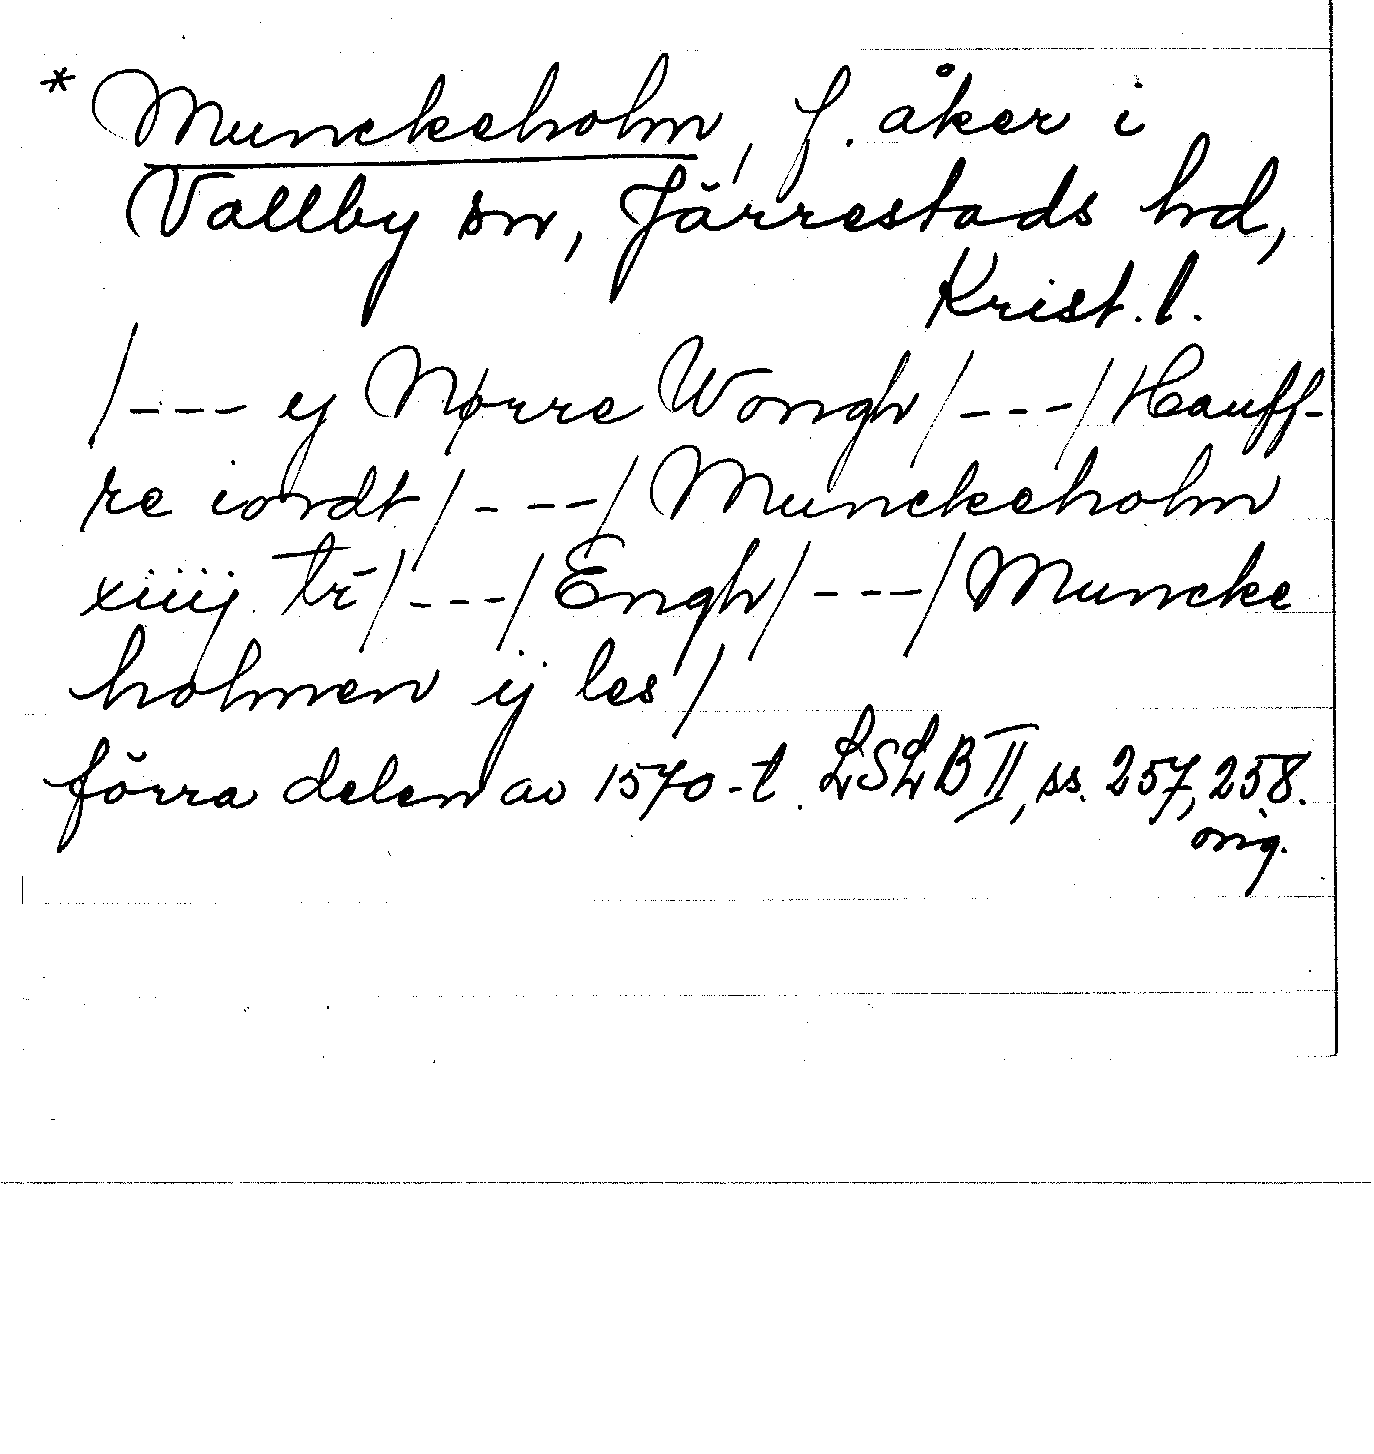 * Munckeholm, f. åker i
Vallby sn, Järrestads hd,
Krist. l.
/--- ij Nørre Wongh/---/Hauff-
re iordt/---/Munckeholm
xiiij tr̄/---/Engh/---/Muncke
holmen ij les/
förra delen av 1570-t. LSLB II, ss. 257, 258.
orig.